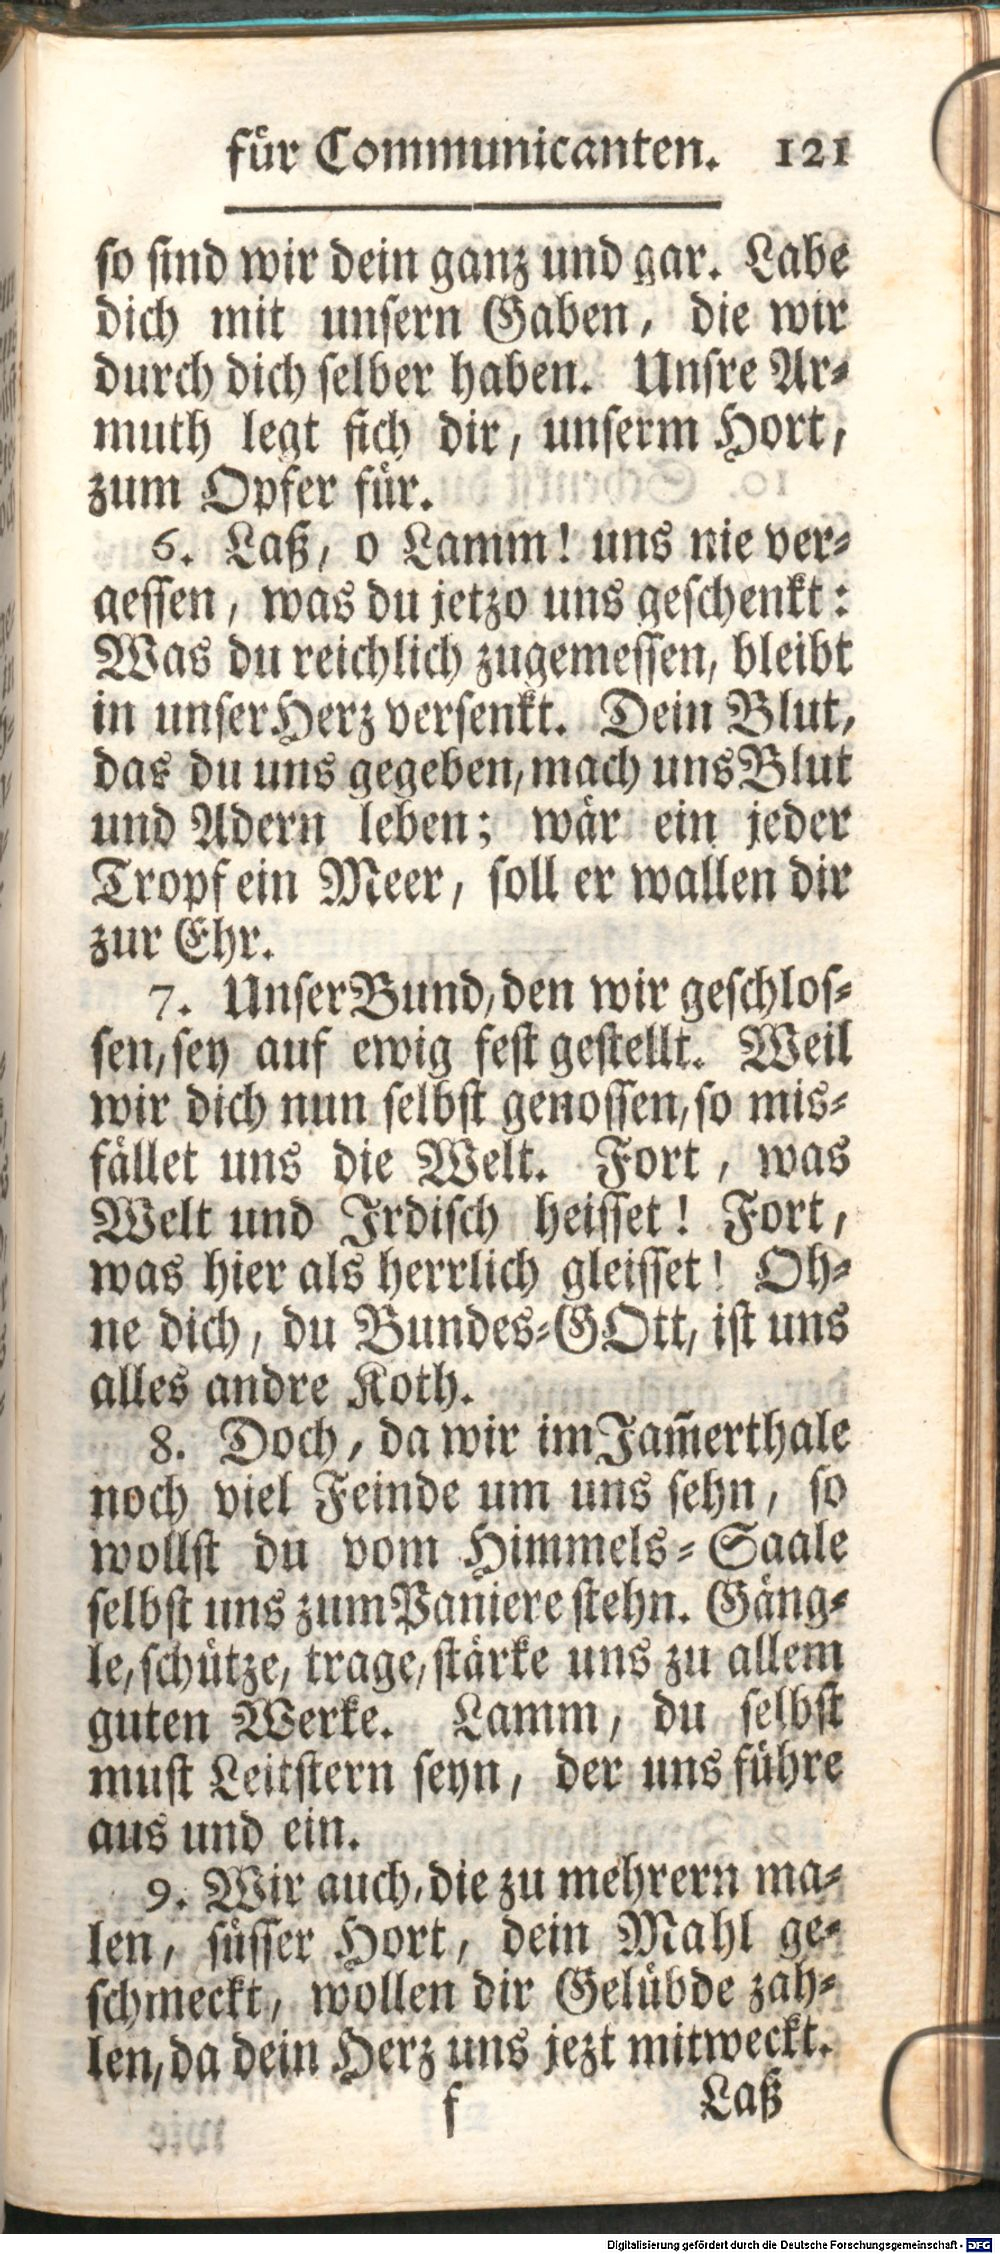 für Communicanten. 121
so sind wir dein ganz und gar. Labe
dich mit unsern Gaben, die wir
durch dich selber haben. Unsre Ar-
muth legt sich dir, unserm Hort,
zum Opfer für.
6. Laß, o Lamm! uns nie ver-
gessen, was du jetzo uns geschenkt:
Was du reichlich zugemessen, bleibt
in unser Herz versenkt. Dein Blut,
das du uns gegeben, mach uns Blut
und Adern leben; wär ein jeder
Tropf ein Meer, soll er wallen dir
zur Ehr.
7. Unser Bund, den wir geschlos-
sen, sey auf ewig fest gestellt. Weil
wir dich nun selbst genossen, so mis-
fället uns die Welt. Fort, was
Welt und Irdisch heisset! Fort,
was hier als herrlich gleisset! Oh-
ne dich, du Bundes-GOtt, ist uns
alles andre Koth.
8. Doch, da wir im Jam̄erthale
noch viel Feinde um uns sehn, so
wollst du vom Himmels-Saale
selbst uns zum Paniere stehn. Gäng-
le, schütze, trage, stärke uns zu allem
guten Werke. Lamm, du selbst
must Leitstern seyn, der uns führe
aus und ein.
9. Wir auch, die zu mehrern ma-
len, süsser Hort, dein Mahl ge-
schmeckt, wollen dir Gelübde zah-
len, da dein Herz uns jezt mitweckt.
f Laß
Digitalisierung gefördert durch die Deutsche Forschungsgemeinschaft - DFG